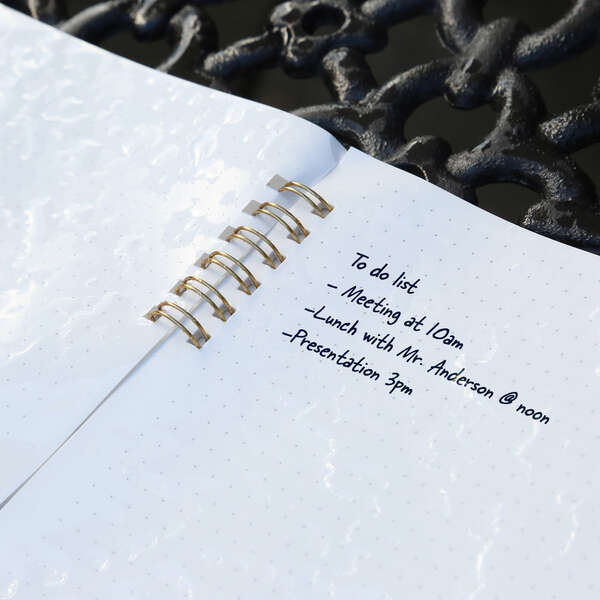 To do list
- Meeting at 10am
-Lunch with Mr. Anderson @ noon
-Presentation 3pm